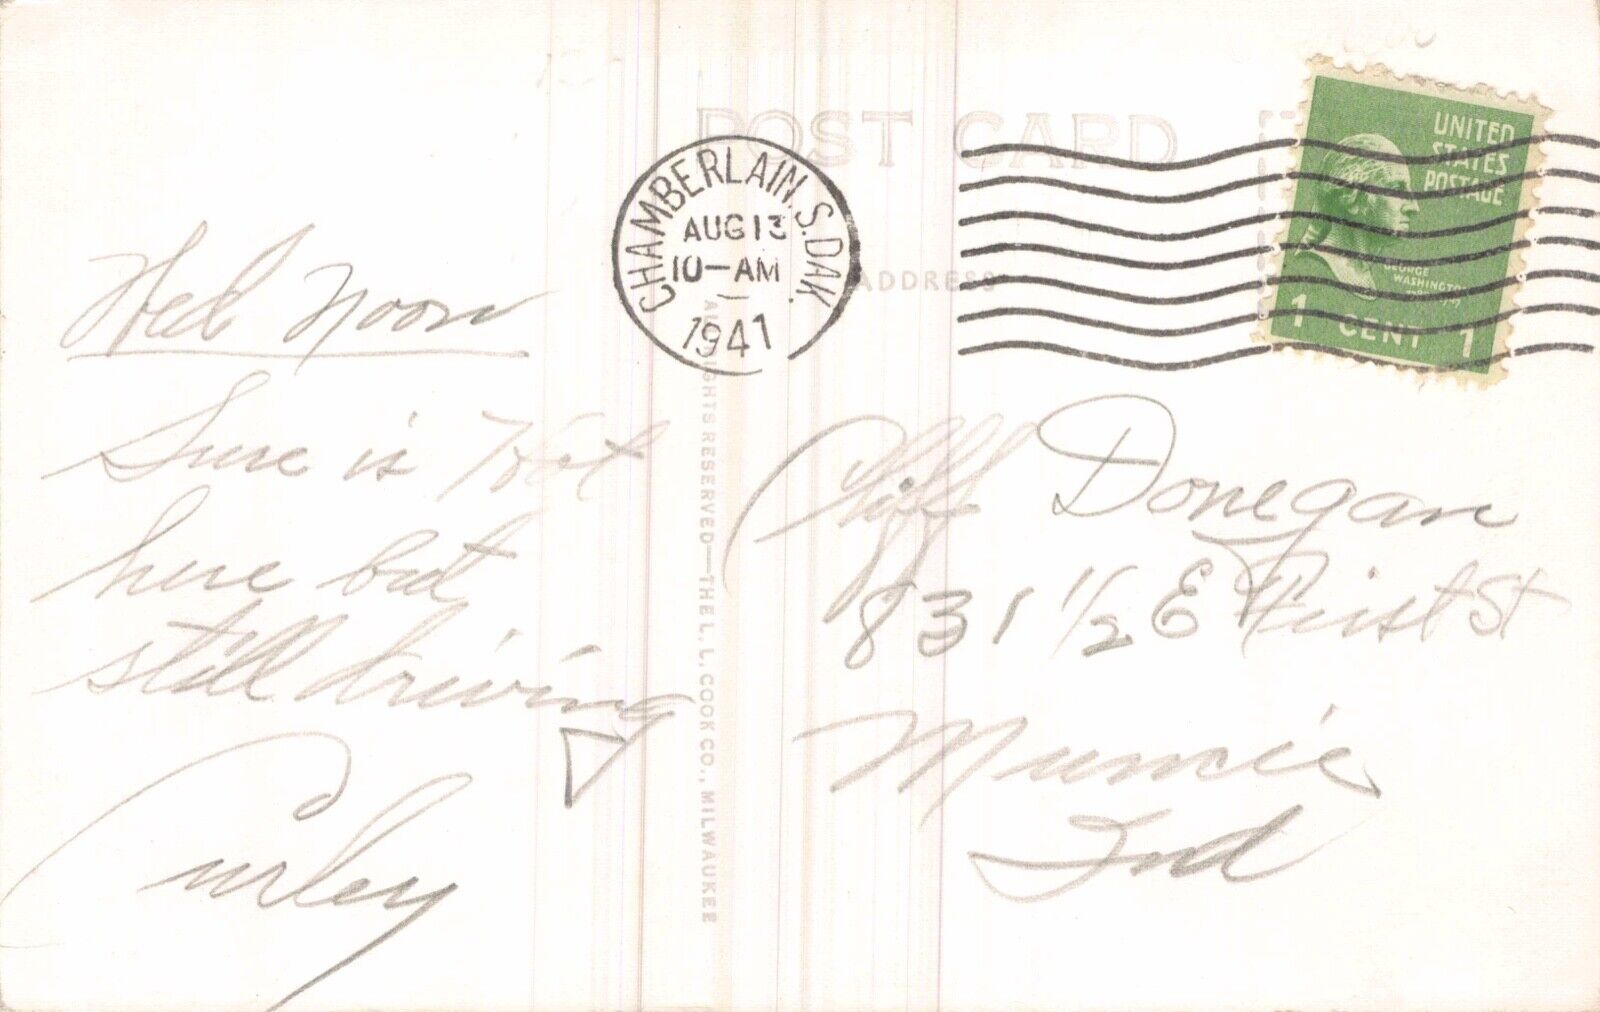 POST CARD
CHAMBERLAIN, S. DAK.
AUG 13
10-AM
1941
UNITED
STATES
POSTAGE
GEORGE
WASHINGTON
1 CENT 1
ADDRESS
Wed Noon
Sure is Hot
here but
still driving
Curley
ALL RIGHTS RESERVED—THE L. L. COOK CO., MILWAUKEE
Cliff Donegan
831 1/2 E First St
Muncie
Ind